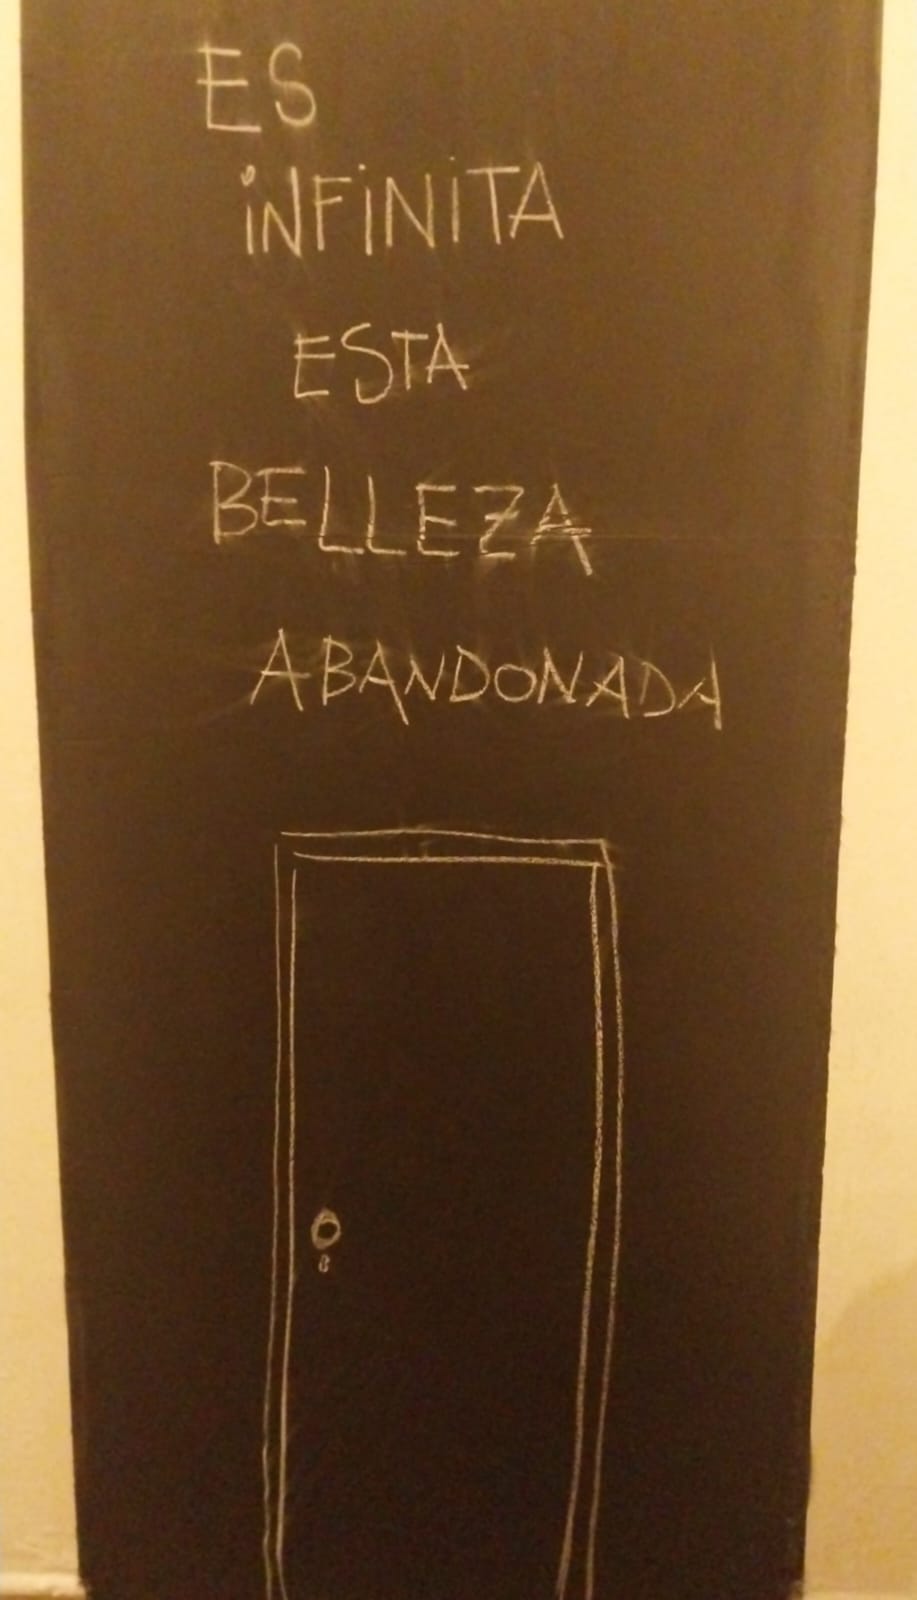 ES
iNFiNiTA
ESTA
BELLEZA
ABANDONADA